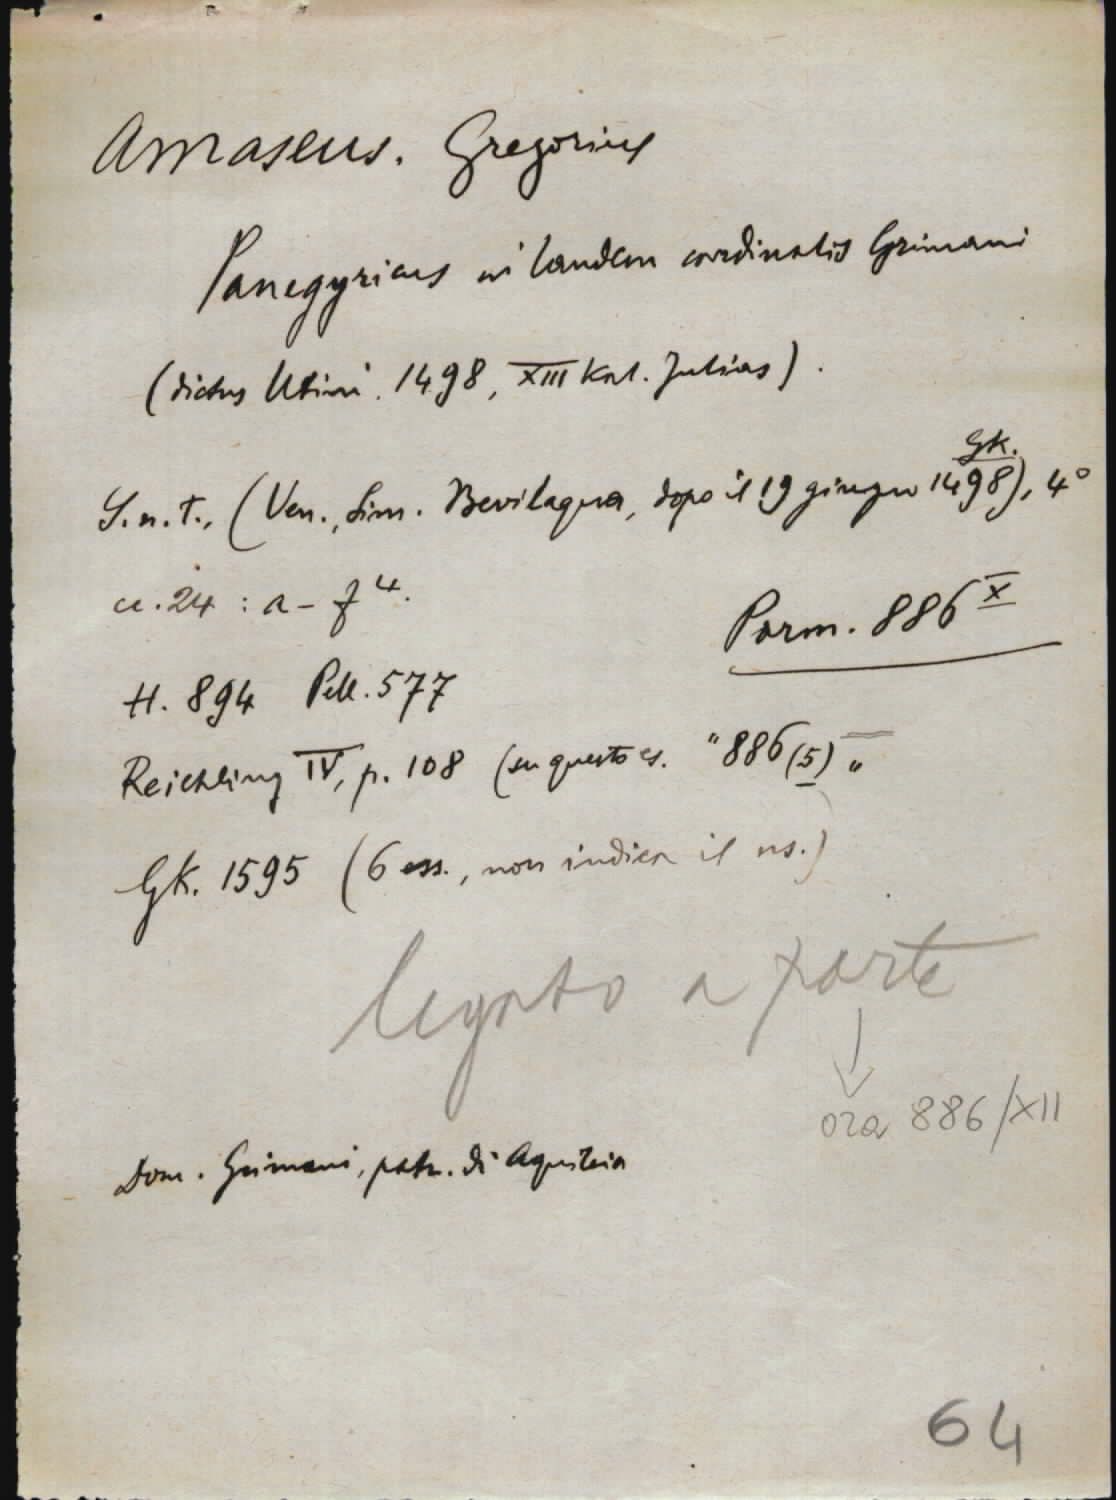 Amaseus. Gregorius
Panegyricus in laudem cardinalis Grimani
(dictus Utini. 1498, XIII Kal. Julias).
Gk.
S.n.t., (Ven., Sim. Bevilaqua, dopo il 19 giugno 1498), 4°
cc. 24 : a - f⁴.
Parm. 886 X
H. 894 Pell. 577
Reichling IV, p. 108 (su questo es. "886 (5)"
Gk. 1595 (6 ess., non indica il ns.)
legato a parte
ora 886/XII
Dom. Grimani, patr. di Aquileia
64